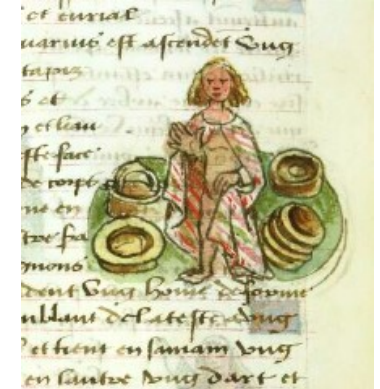 et curial
uarius est ascendet Vng
tapis
s et
n et liau
ste face
de corps
ne en
tre fa
gnons
dent Vng home de forme
mblant de la teste dung
et tient en sa main vng
en lautre vng dart et